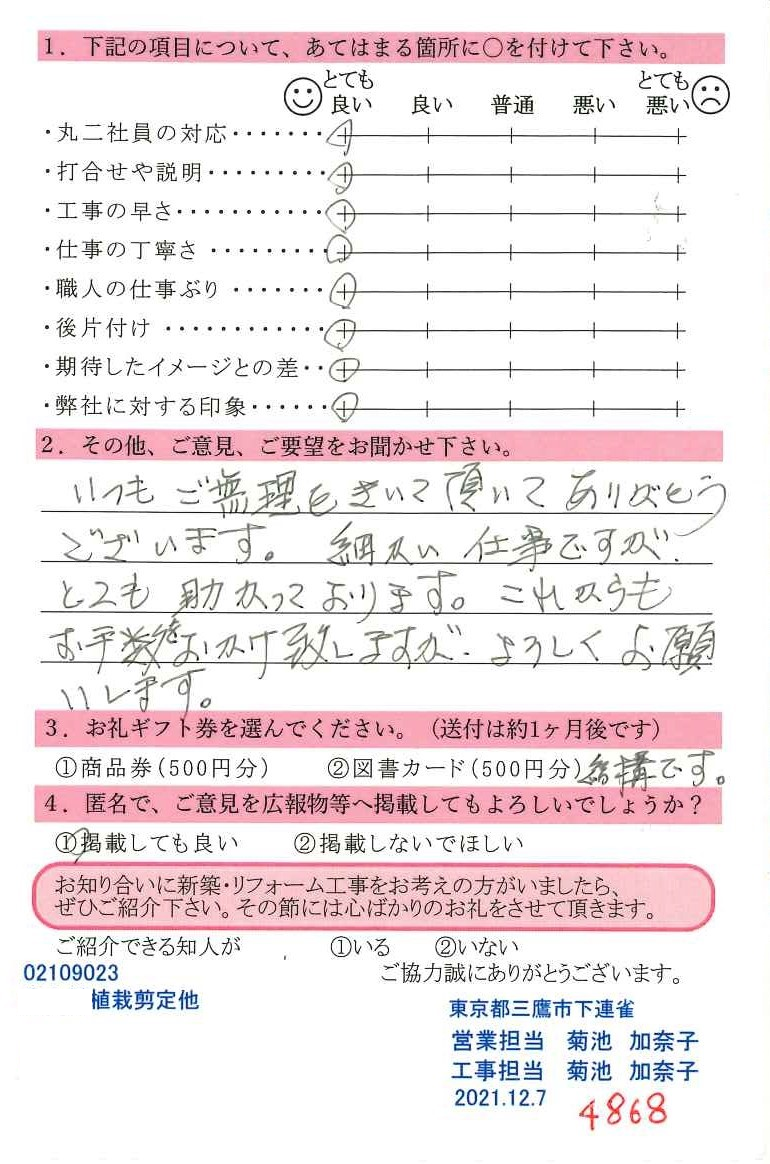 1．下記の項目について、あてはまる箇所に○を付けて下さい。
とても良い 良い 普通 悪い とても悪い
・丸二社員の対応・・・・・・・
・打合せや説明・・・・・・・・・
・工事の早さ・・・・・・・・・・・
・仕事の丁寧さ・・・・・・・・・
・職人の仕事ぶり・・・・・・・
・後片付け・・・・・・・・・・・・
・期待したイメージとの差・・
・弊社に対する印象・・・・・・
2．その他、ご意見、ご要望をお聞かせ下さい。
いつもご無理をきいて頂いてありがとう
ございます。細かい仕事ですが、
とても助かっております。これからも
お手数をおかけ致しますが、よろしくお願
いします。
3．お礼ギフト券を選んでください。（送付は約1ヶ月後です）
①商品券（500円分） ②図書カード（500円分） 結構です。
4．匿名で、ご意見を広報物等へ掲載してもよろしいでしょうか？
①掲載しても良い ②掲載しないでほしい
お知り合いに新築・リフォーム工事をお考えの方がいましたら、
ぜひご紹介下さい。その節には心ばかりのお礼をさせて頂きます。
ご紹介できる知人が ①いる ②いない
02109023
ご協力誠にありがとうございます。
植栽剪定他
東京都三鷹市下連雀
営業担当 菊池 加奈子
工事担当 菊池 加奈子
2021.12.7
4868